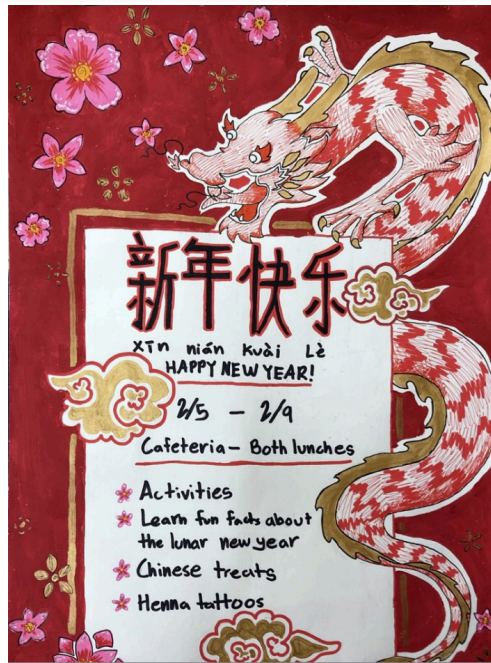 新年快乐
xīn nián kuài Lè
HAPPY NEW YEAR!
2/5 - 2/9
Cafeteria - Both lunches
Activities
Learn fun facts about
the lunar new year
Chinese treats
Henna tattoos